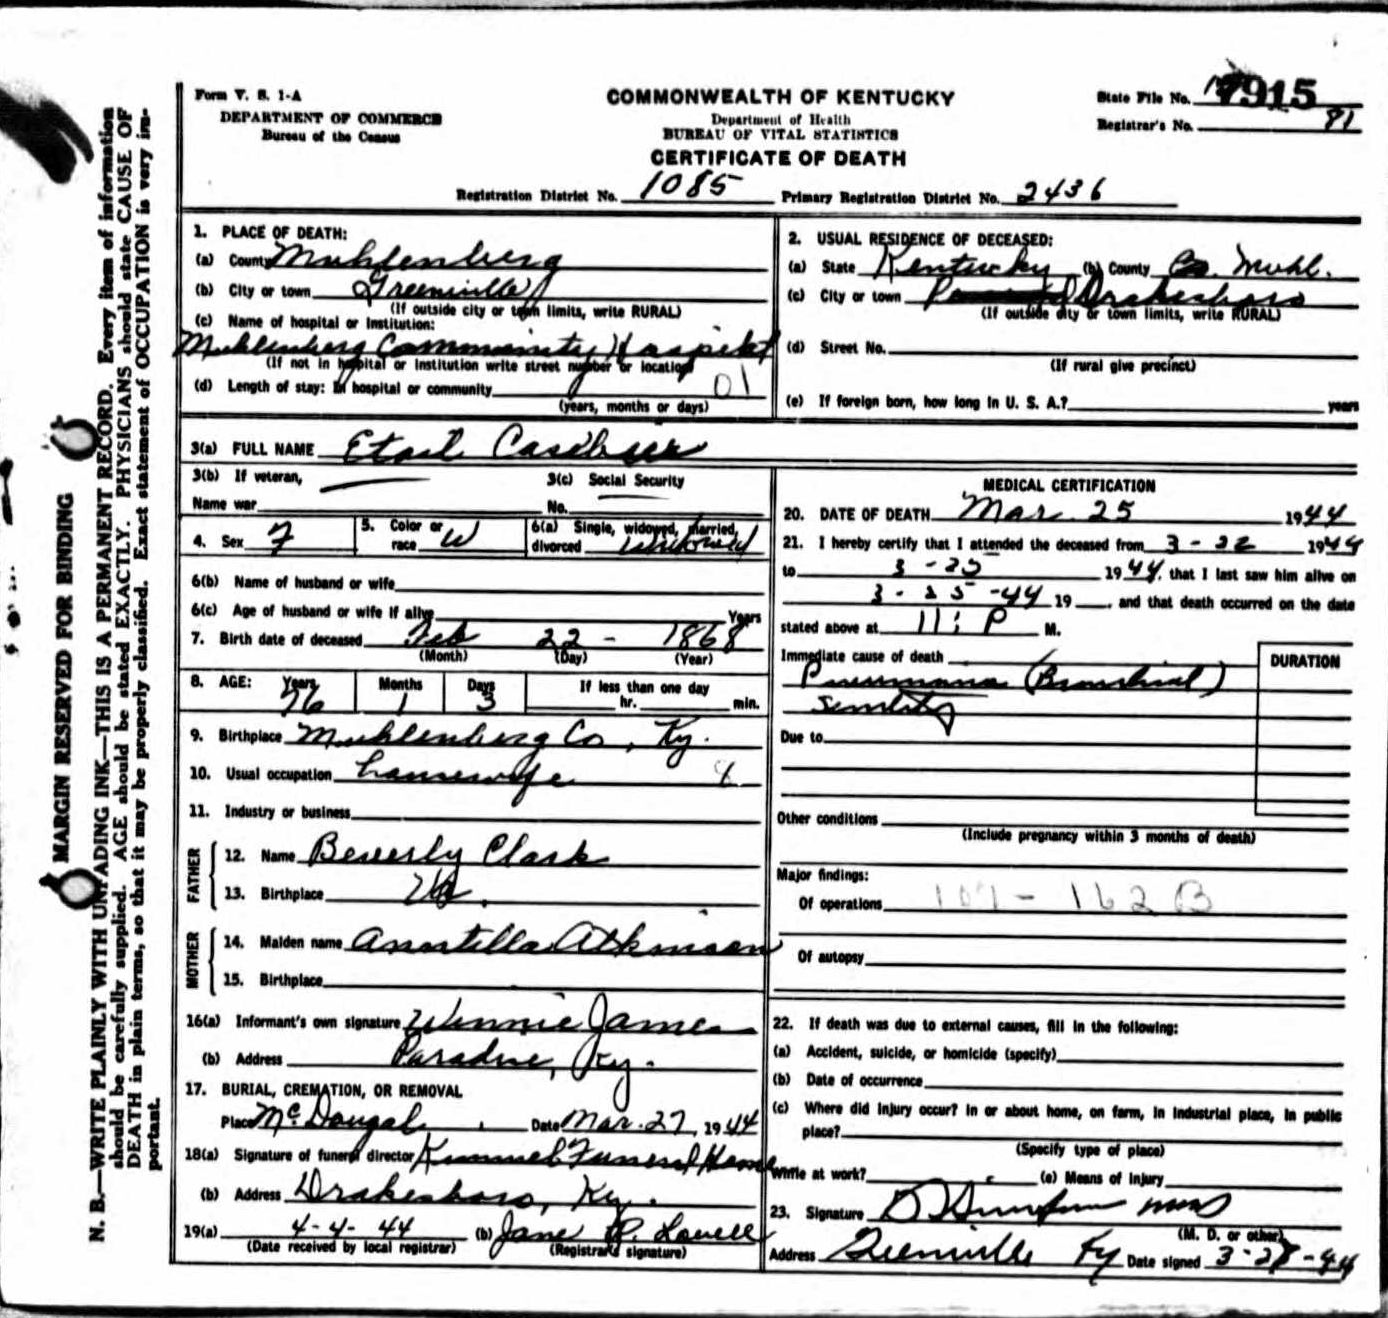 Form V. S. 1-A
DEPARTMENT OF COMMERCE
Bureau of the Census
COMMONWEALTH OF KENTUCKY
Department of Health
BUREAU OF VITAL STATISTICS
CERTIFICATE OF DEATH
State File No. 7915
Registrar's No. 81
Registration District No. 1085 Primary Registration District No. 2436
1. PLACE OF DEATH:
(a) County Muhlenberg
(b) City or town Greenville
(If outside city or town limits, write RURAL)
(c) Name of hospital or institution:
Muhlenberg Community Hospital
(If not in hospital or institution write street number or location)
(d) Length of stay: In hospital or community 01
(years, months or days)
2. USUAL RESIDENCE OF DECEASED:
(a) State Kentucky (b) County Muhl.
(c) City or town Drakesboro
(If outside city or town limits, write RURAL)
(d) Street No.
(If rural give precinct)
(e) If foreign born, how long in U. S. A.? years
3(a) FULL NAME Casebier
3(b) If veteran,
Name war
3(c) Social Security
No.
4. Sex F
5. Color or race W
6(a) Single, widowed, married, divorced Widowed
6(b) Name of husband or wife
6(c) Age of husband or wife if alive Years
7. Birth date of deceased Feb 22 - 1868
(Month) (Day) (Year)
8. AGE: Years 76 Months 1 Days 3 If less than one day
hr. min.
9. Birthplace Muhlenberg Co, Ky.
10. Usual occupation housewife
11. Industry or business
FATHER
12. Name Beverly Clark
13. Birthplace
MOTHER
14. Maiden name Atkinson
15. Birthplace
16(a) Informant's own signature Winnie James
(b) Address Paradise, Ky.
17. BURIAL, CREMATION, OR REMOVAL
Place McDougal Date Mar. 27, 1944
18(a) Signature of funeral director Funeral Home
(b) Address Drakesboro, Ky.
19(a) 4-4-44 (b) Jane P. Lovell
(Date received by local registrar) (Registrar's signature)
MEDICAL CERTIFICATION
20. DATE OF DEATH Mar 25 1944
21. I hereby certify that I attended the deceased from 3-22 1944
to 3-25 1944, that I last saw him alive on
3-25-44 19 , and that death occurred on the date
stated above at 11: P M.
Immediate cause of death
DURATION
Pneumonia (Bronchial)
Senility
Due to
Other conditions
(Include pregnancy within 3 months of death)
Major findings:
Of operations 107 - 162 B
Of autopsy
22. If death was due to external causes, fill in the following:
(a) Accident, suicide, or homicide (specify)
(b) Date of occurrence
(c) Where did injury occur? In or about home, on farm, in industrial place, in public
place?
(Specify type of place)
While at work? (e) Means of Injury
23. Signature
(M. D. or other)
Address Greenville Ky Date signed 3-28-44
MARGIN RESERVED FOR BINDING
N. B.—WRITE PLAINLY WITH UNFADING INK—THIS IS A PERMANENT RECORD. Every item of information
should be carefully supplied. AGE should be stated EXACTLY. PHYSICIANS should state CAUSE OF
DEATH in plain terms, so that it may be properly classified. Exact statement of OCCUPATION is very im-
portant.